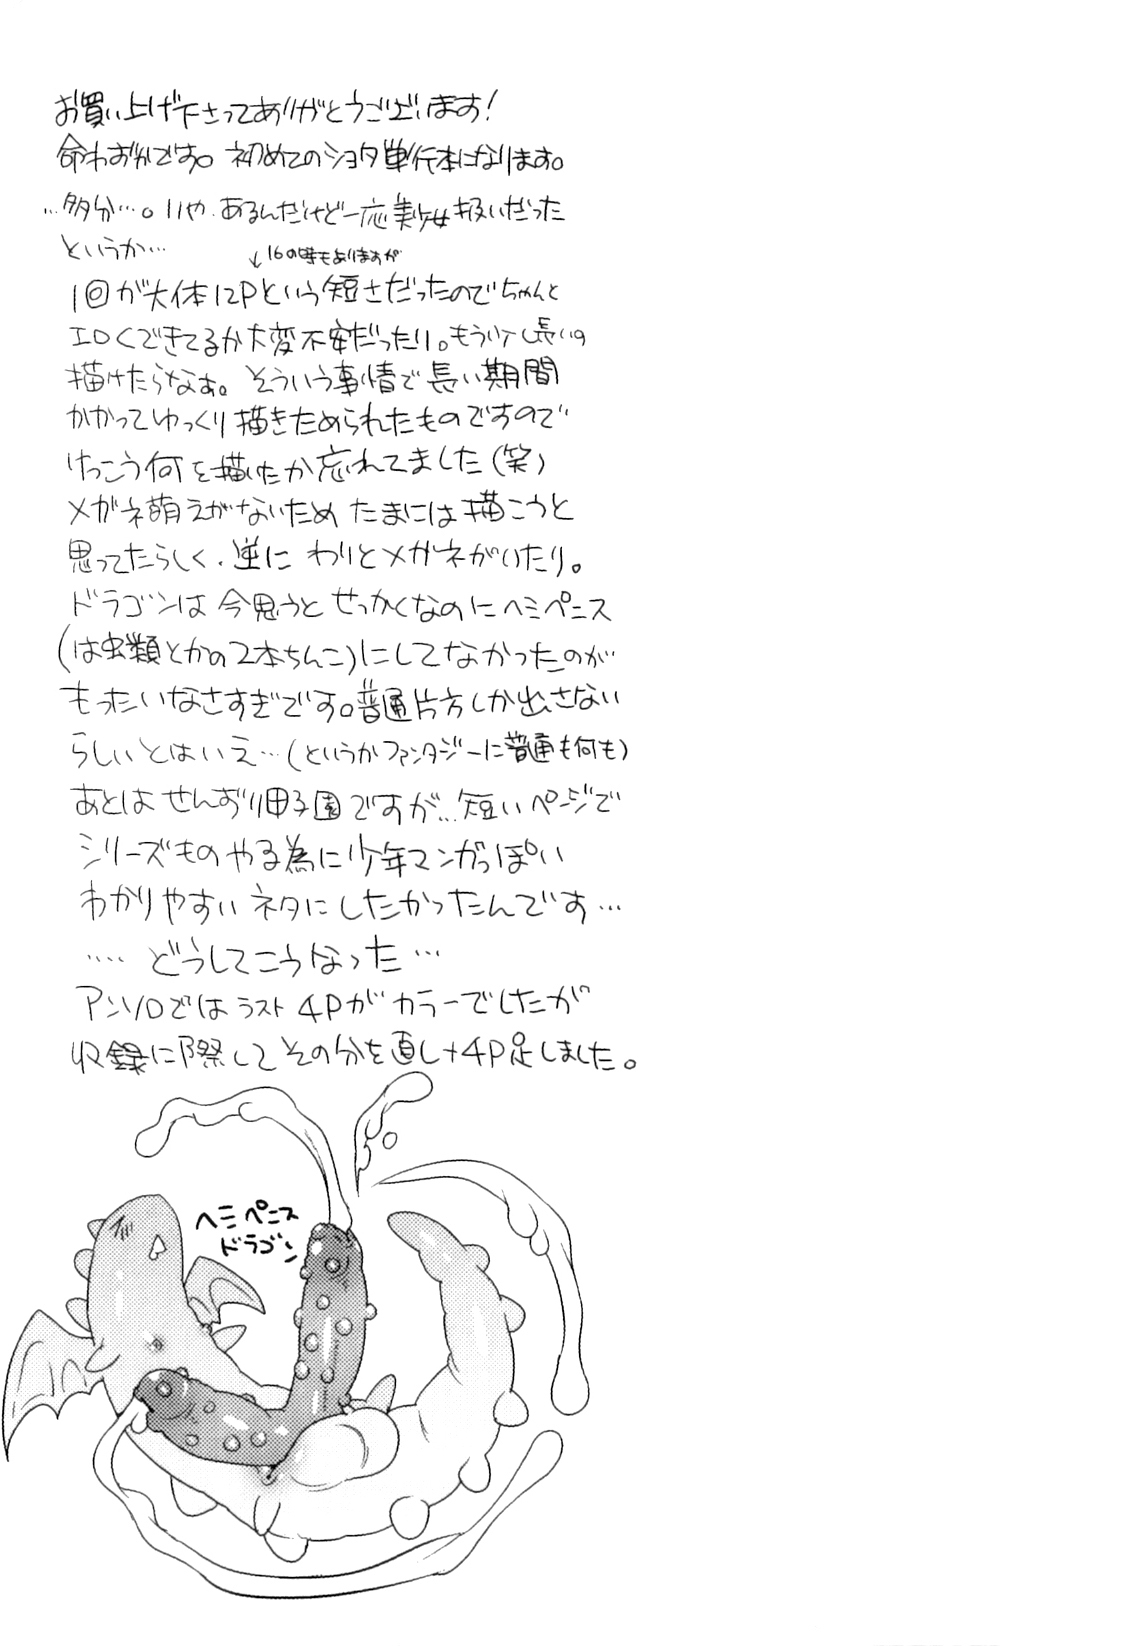 お買い上げ下さってありがとうございます!
命わずかです。初めてのショタ単行本になります。
…多分…。いや、あるんだけど一応美少女扱いだった
というか…
↓16の時もありますが
1回が大体12Pという短さだったのでちゃんと
エロくできてるか大変不安だったり。もう少し長いの
描けたらなぁ。そういう事情で長い期間
かかってゆっくり描きためられたものですので
けっこう何を描いたか忘れてました(笑)
メガネ萌えがないため たまには描こうと
思ってたらしく、逆に わりとメガネがいたり。
ドラゴンは 今思うと せっかくなのに ヘミペニス
(は虫類とかの2本ちんこ)にしてなかったのが
もったいなさすぎです。普通片方しか出さない
らしいとはいえ…(というかファンタジーに普通も何も)
あとは せんずり甲子園ですが…短いページで
シリーズものやる為に少年マンガっぽい
わかりやすい ネタに したかったんです…
…. どうしてこうなった…
アンソロではラスト 4Pがカラーでしたが
収録に際して その分を直し+4P足しました。
ヘミペニス
ドラゴン